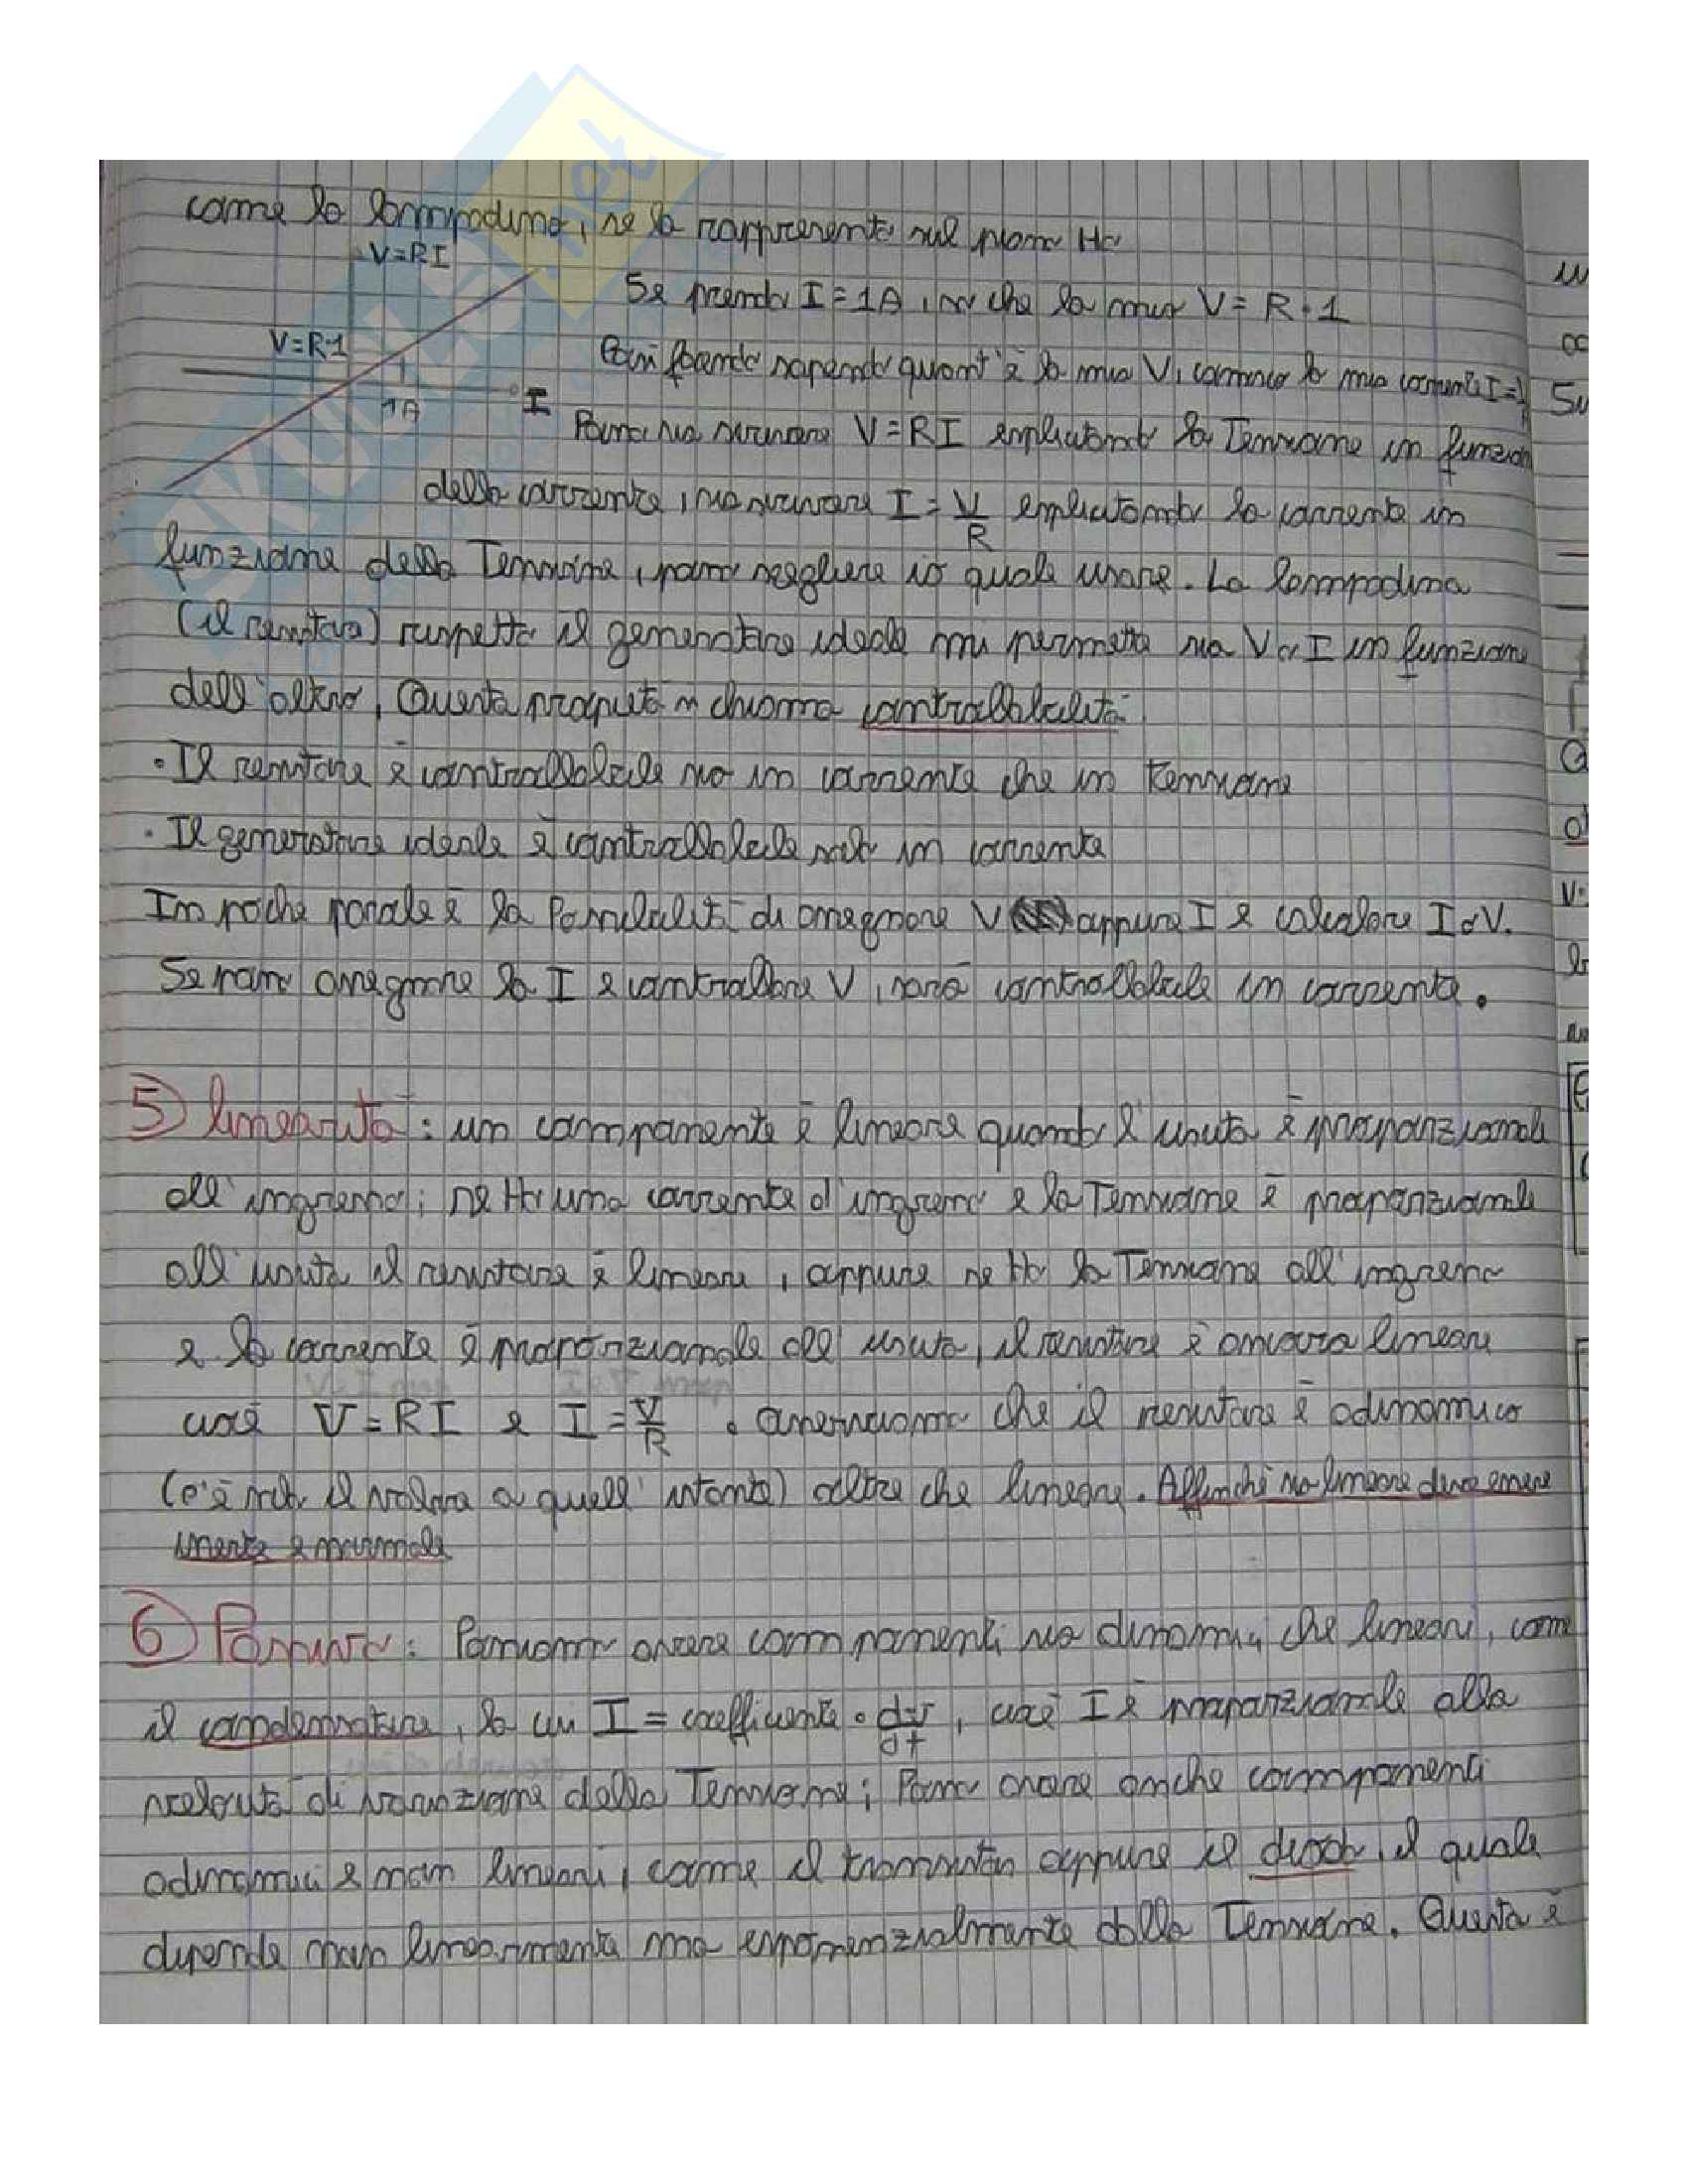 come la lampadina, se la rappresento sul piano Ho
V=RI
Se prendo I=1A, so che la mia V = R·1
V=R·1
Così facendo sapendo quant'è la mia V, conosco la mia corrente I=
1A
I
Posso sia scrivere V=RI esplicitando la Tensione in funzion
della corrente, sia scrivere I = V/R esplicitando la corrente in
funzione della Tensione, posso scegliere io quale usare. La lampadina
(il resistore) rispetto il generatore ideale mi permette sia V o I in funzione
dell'altro, Questa propietà si chiama controllabilità
· Il resistore è controllabile sia in corrente che in tensione
· Il generatore ideale è controllabile solo in corrente
In poche parole è la Possibilità di assegnare V oppure I e calcolare I o V.
Se posso assegnare la I e controllare V, sarà controllabile in corrente.
5) linearità: un componente è lineare quando l'uscita è proporzionale
all'ingresso; se Ho una corrente d'ingresso e la Tensione è proporzionale
all'uscita il resistore è lineare, oppure se Ho la Tensione all'ingresso
e la corrente è proporzionale all'uscita, il resistore è ancora lineare
cioè V=RI e I=V/R. osserviamo che il resistore è adinamico
(c'è solo il valore a quell'istante) oltre che lineare. Affinché sia lineare deve essere
inerte e normale
6) Passività: Possiamo avere componenti sia dinamici che lineari, come
il condensatore, la cui I = coefficiente · dv/dt, cioè I è proporzionale alla
velocità di variazione della Tensione; Posso avere anche componenti
adinamici e non lineari, come il transistor oppure il diodo, il quale
dipende non linearmente ma esponenzialmente dalla Tensione. Questa è